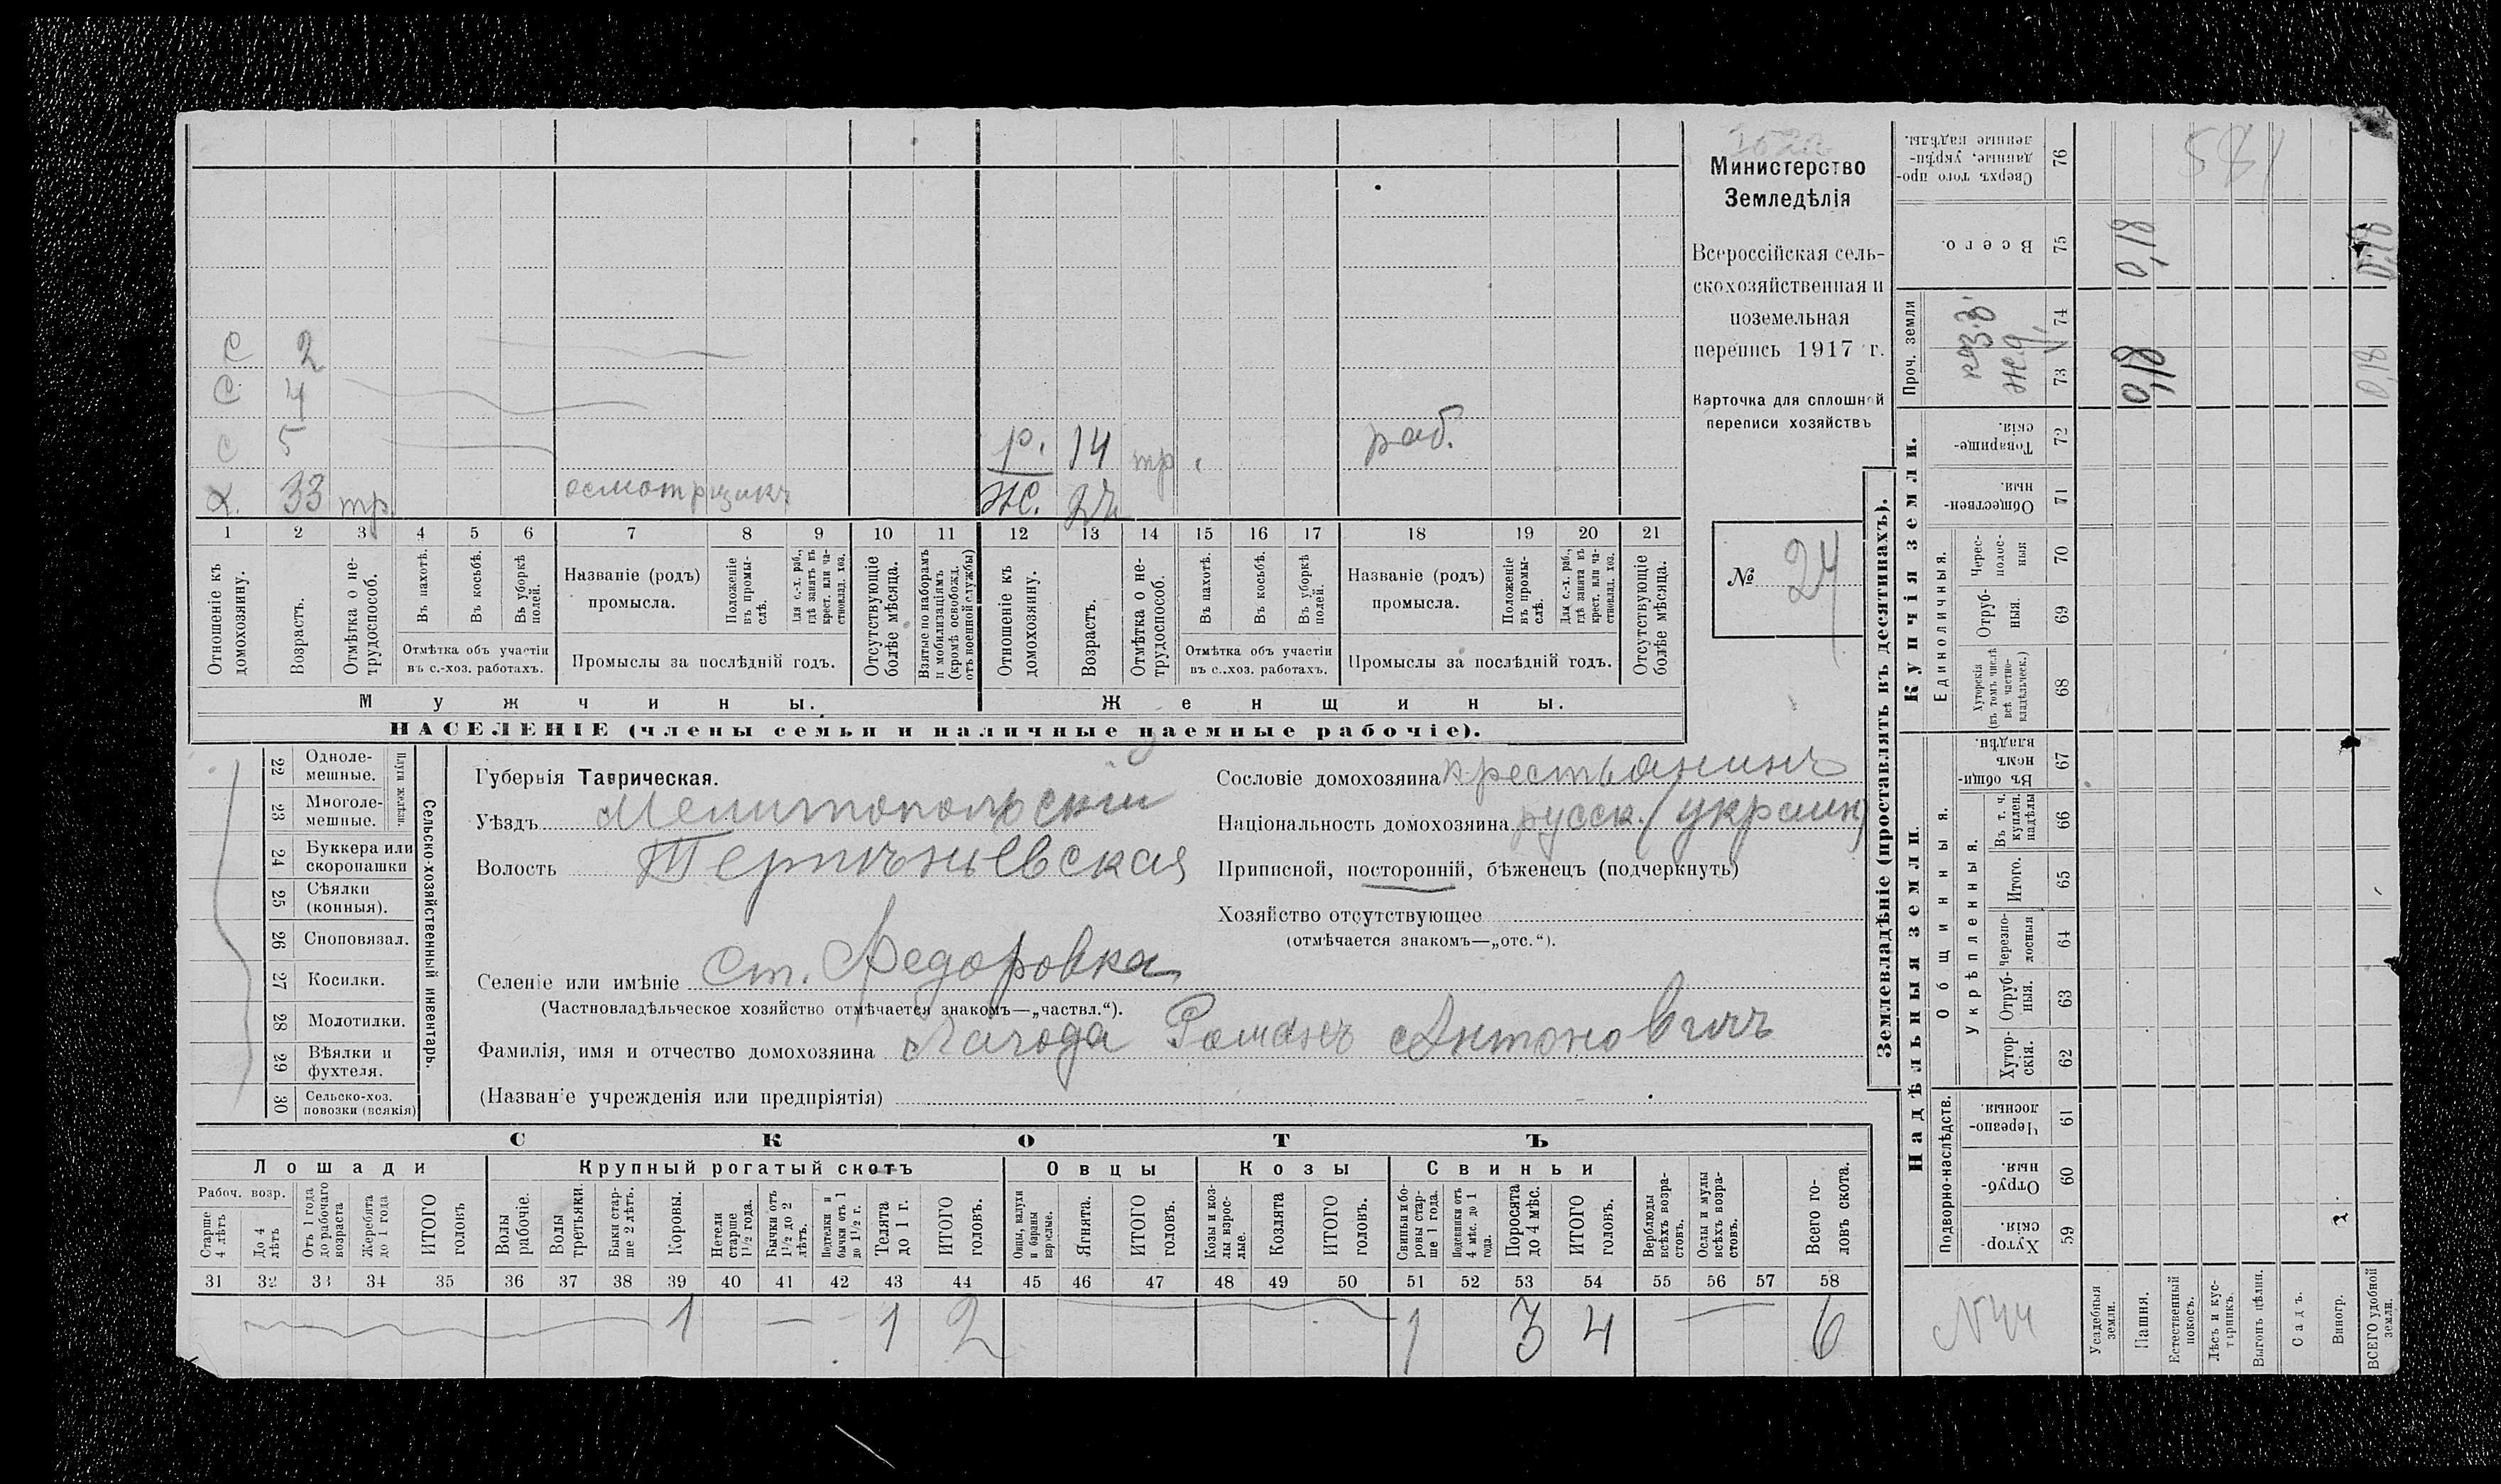 С 2
С 4
с 5
р. 14 тр. раб.
х. 33 тр. осмотрщикъ Ж.
1 2 3 4 5 6 7 8 9 10 11 12 13 14 15 16 17 18 19 20 21
Отношеніе къ домохозяину.
Возрастъ.
Отмѣтка о не-трудоспособ.
Въ пахотѣ.
Въ косьбѣ.
Въ уборкѣ полей.
Отмѣтка объ участіи
въ с.-хоз. работахъ.
Названіе (родъ)
промысла.
Положеніе въ промы-слѣ.
Для с.-х. раб., гдѣ занятъ въ крест. или ча-стновлад. хоз.
Промыслы за послѣдній годъ.
Отсутствующіе болѣе мѣсяца.
Взятые по наборамъ и мобилизаціямъ (кромѣ освобожд. отъ военной службы)
Отношеніе къ домохозяину.
Возрастъ.
Отмѣтка о не-трудоспособ.
Въ пахотѣ.
Въ косьбѣ.
Въ уборкѣ полей.
Отмѣтка объ участіи
въ с.-хоз. работахъ.
Названіе (родъ)
промысла.
Положеніе въ промы-слѣ.
Для с.-х. раб., гдѣ занята въ крест. или ча-стновлад. хоз.
Промыслы за послѣдній годъ.
Отсутствующіе болѣе мѣсяца.
Мужчины. Женщины.
НАСЕЛЕНІЕ (члены семьи и наличные наемные рабочіе).
Министерство
Земледѣлія
Всероссійская сель-
скохозяйственная и
поземельная
перепись 1917 г.
Карточка для сплошной
переписи хозяйствъ
№ 24
22 Одноле-мешные.
23 Многоле-мешные.
Плуги желѣзн.
24 Буккера или скоропашки
25 Сѣялки (конныя).
26 Сноповязал.
27 Косилки.
28 Молотилки.
29 Вѣялки и фухтеля.
30 Сельско-хоз. повозки (всякія)
Сельско-хозяйственный инвентарь.
Губернія Таврическая.
Уѣздъ Мелитопольскій
Волость
Селеніе или имѣніе Ст. Федоровка
(Частновладѣльческое хозяйство отмѣчается знакомъ—„частвл.“).
Фамилія, имя и отчество домохозяина Романъ Антоновичъ
(Названіе учрежденія или предпріятія)
Сословіе домохозяина крестьянинъ
Національность домохозяина русск. (украин)
Приписной, посторонній, бѣженецъ (подчеркнуть)
Хозяйство отсутствующее
(отмѣчается знакомъ—„отс.“).
СКОТЪ
Лошади Крупный рогатый скотъ Овцы Козы Свиньи
Рабоч. возр.
Старше 4 лѣтъ
До 4 лѣтъ
Отъ 1 года до рабочаго возраста
Жеребята до 1 года
ИТОГО головъ
Волы рабочіе.
Волы третьяки.
Быки стар-ше 2 лѣтъ.
Коровы.
Нетели старше 1 1/2 года.
Бычки отъ 1 1/2 до 2 лѣтъ.
Подтелки и бычки отъ 1 до 1 1/2 г.
Телята до 1 г.
ИТОГО головъ.
Овцы, валухи и бараны взрослые.
Ягнята.
ИТОГО головъ.
Козы и коз-лы взрос-лые.
Козлята
ИТОГО головъ.
Свиньи и бо-ровы стар-ше 1 года.
Подсвинки отъ 4 мѣс. до 1 года.
Поросята до 4 мѣс.
ИТОГО головъ.
Верблюды всѣхъ возра-стовъ.
Ослы и мулы всѣхъ возра-стовъ.
Всего го-ловъ скота.
31 32 33 34 35 36 37 38 39 40 41 42 43 44 45 46 47 48 49 50 51 52 53 54 55 56 57 58
1 — 1 2 1 3 4 — 6
Землевладѣніе (проставлять въ десятинахъ).
Надѣльныя земли. Купчія земли. Проч. земли
Подворно-наслѣдств. Общинныя. Единоличныя.
Укрѣпленныя.
59 Хутор-скія.
60 Отруб-ныя.
61 Черезпо-лосныя.
62 Хутор-скія.
63 Отруб-ныя.
64 Черезпо-лосныя
65 Итого.
66 Въ т. ч. куплен. надѣлы
67 Въ общи-номъ владѣн.
68 Хуторскія (въ томъ числѣ всѣ частно-владѣльческ.)
69 Отруб-ныя.
70 Черес-полос-ныя
71 Обществен-ныя.
72 Товарище-скія.
73 74
75 Всего.
76 Сверхъ того про-данные, укрѣп-ленные надѣлы.
Усадебныя земли.
Пашня. 0,18 0,18
Естественный покосъ.
Лѣсъ и кус-тарникъ.
Выгонъ цѣлин.
Садъ.
Виногр.
ВСЕГО удобной земли. 0,18 0,18